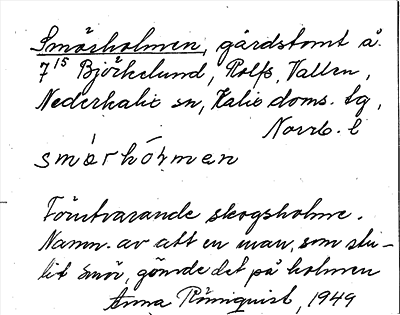 Smörholmen, gårdstomt å
7¹⁵ Björkelund, Rolfs, Vallen,
Nederkalix sn, Kalix doms. tg,
Norrb. l
smø̀rhólmen
Förutvarande skogsholme.
Namn. av att en man, som stu-
lit smör, gömde det på holmen
Anna Römquist, 1949